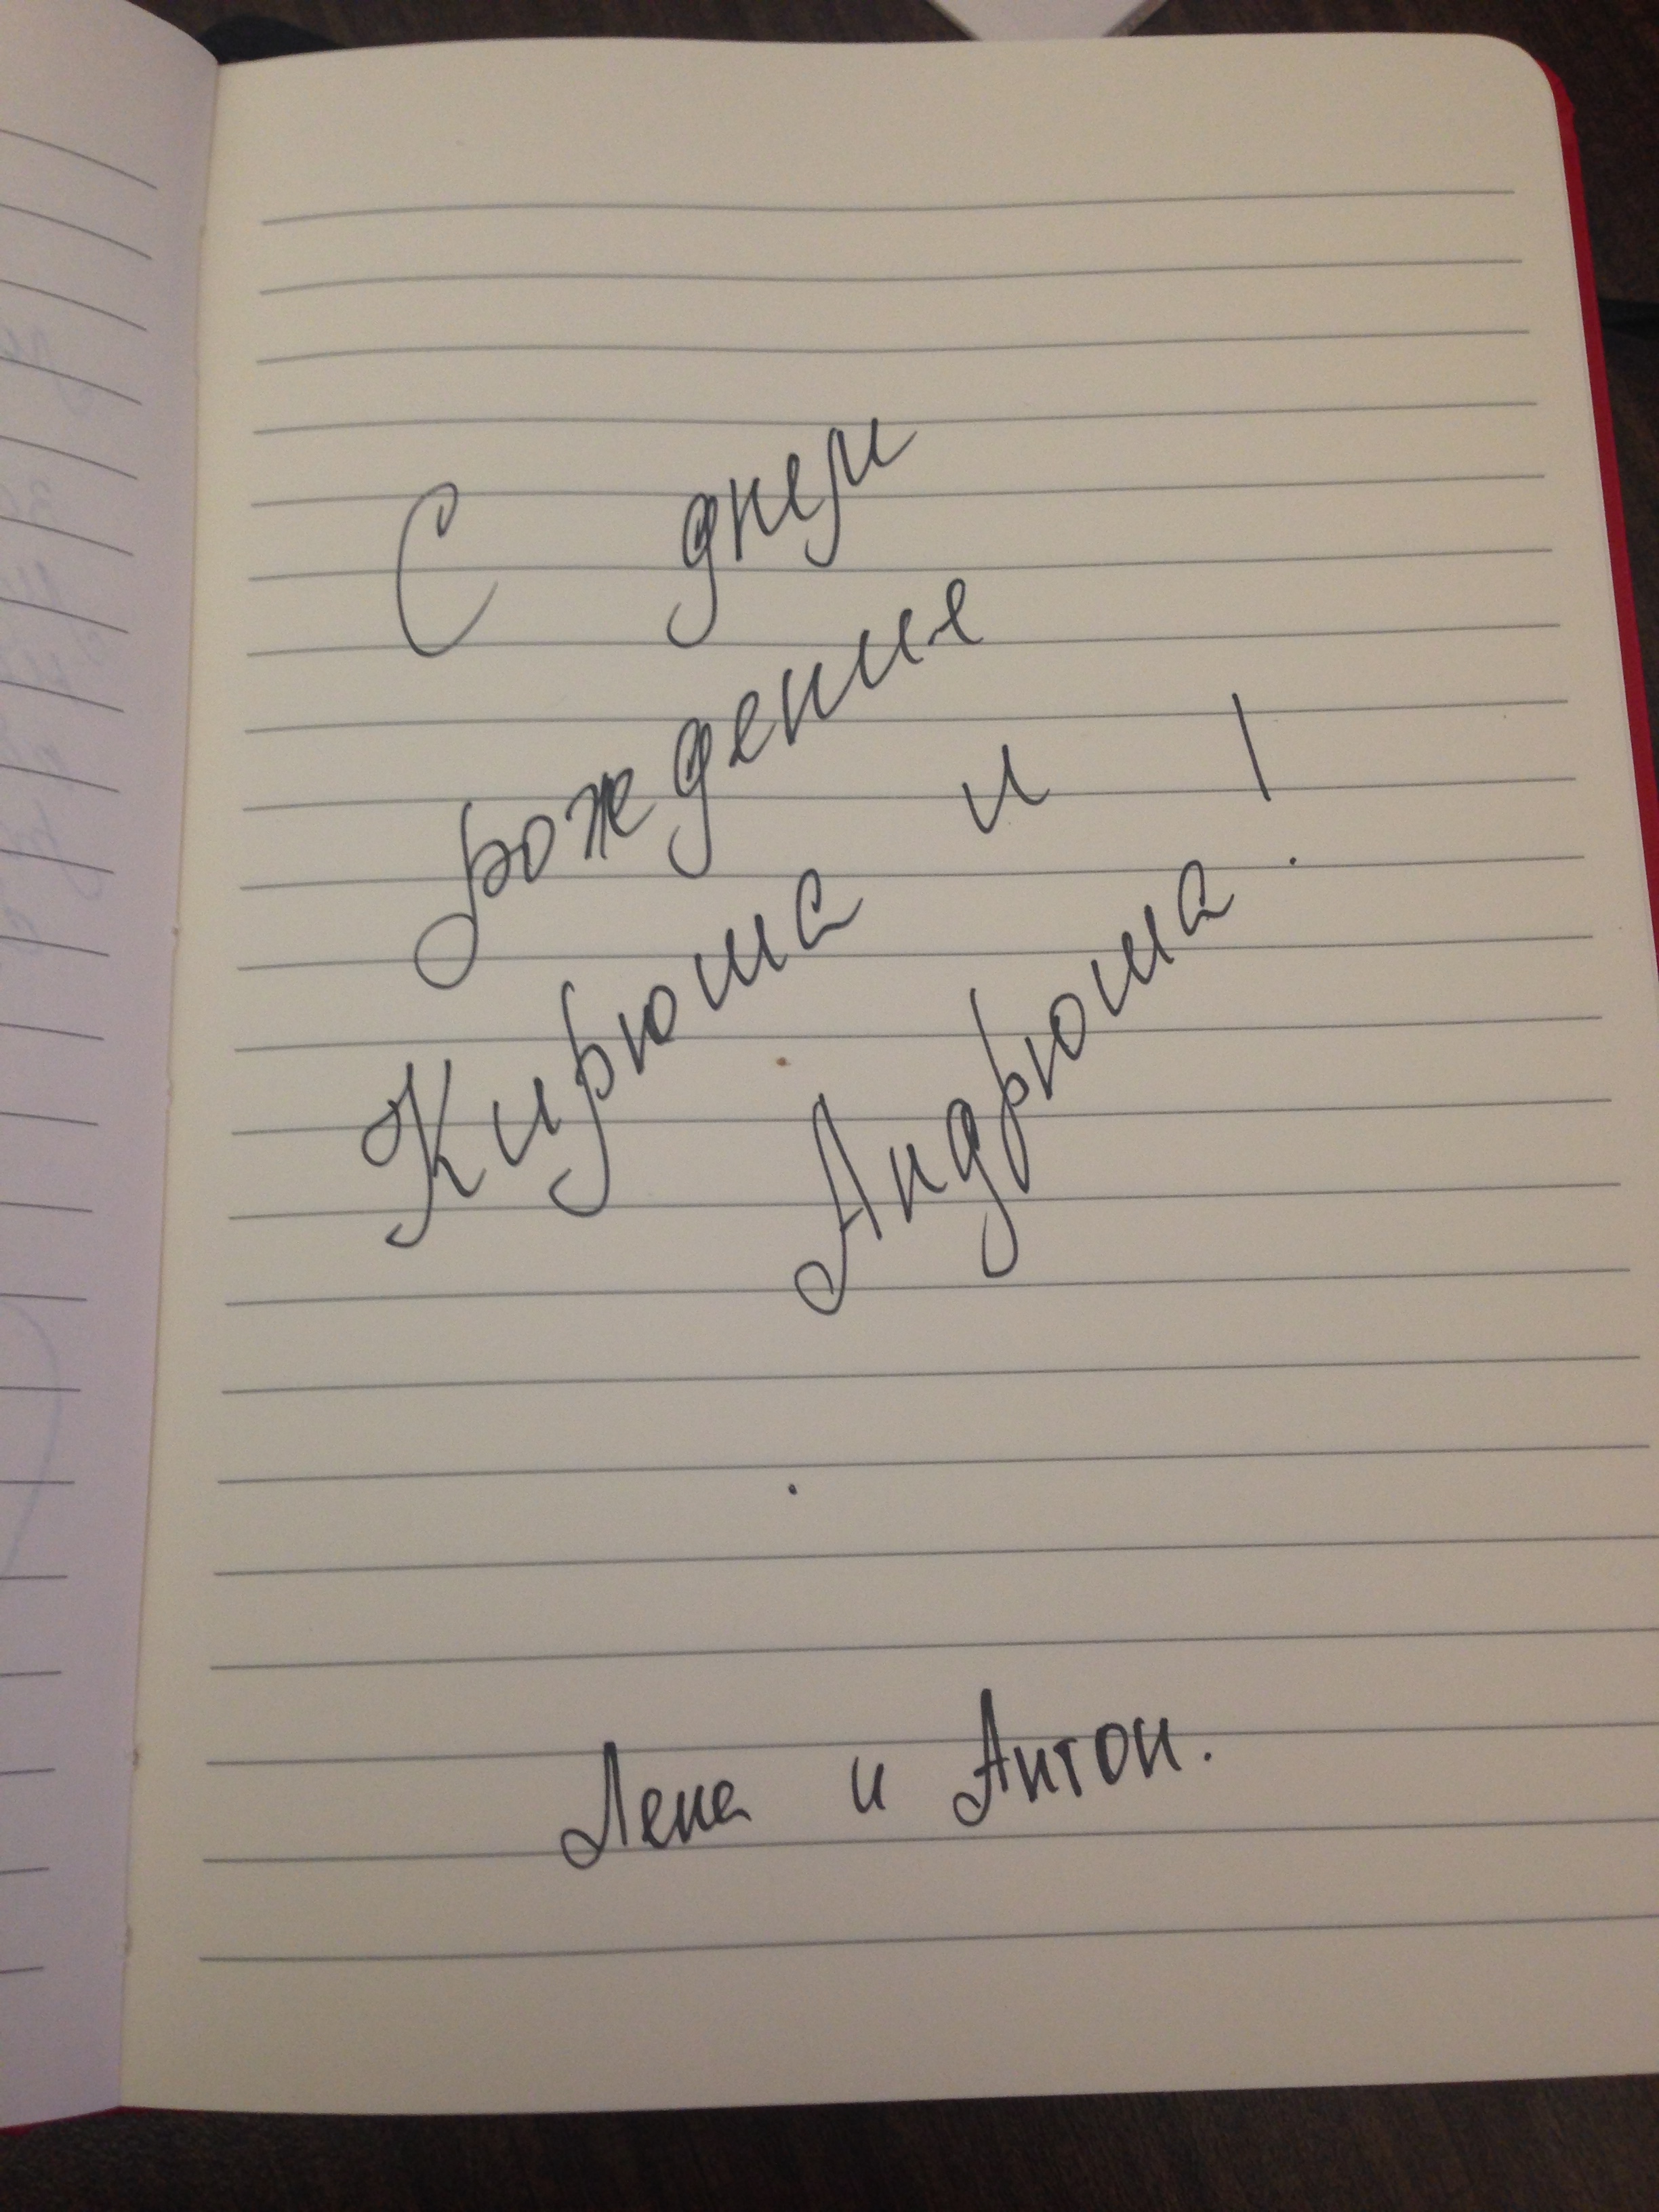 С днем
рождения
Кирюша и
Андрюша!
Лена и Антон.